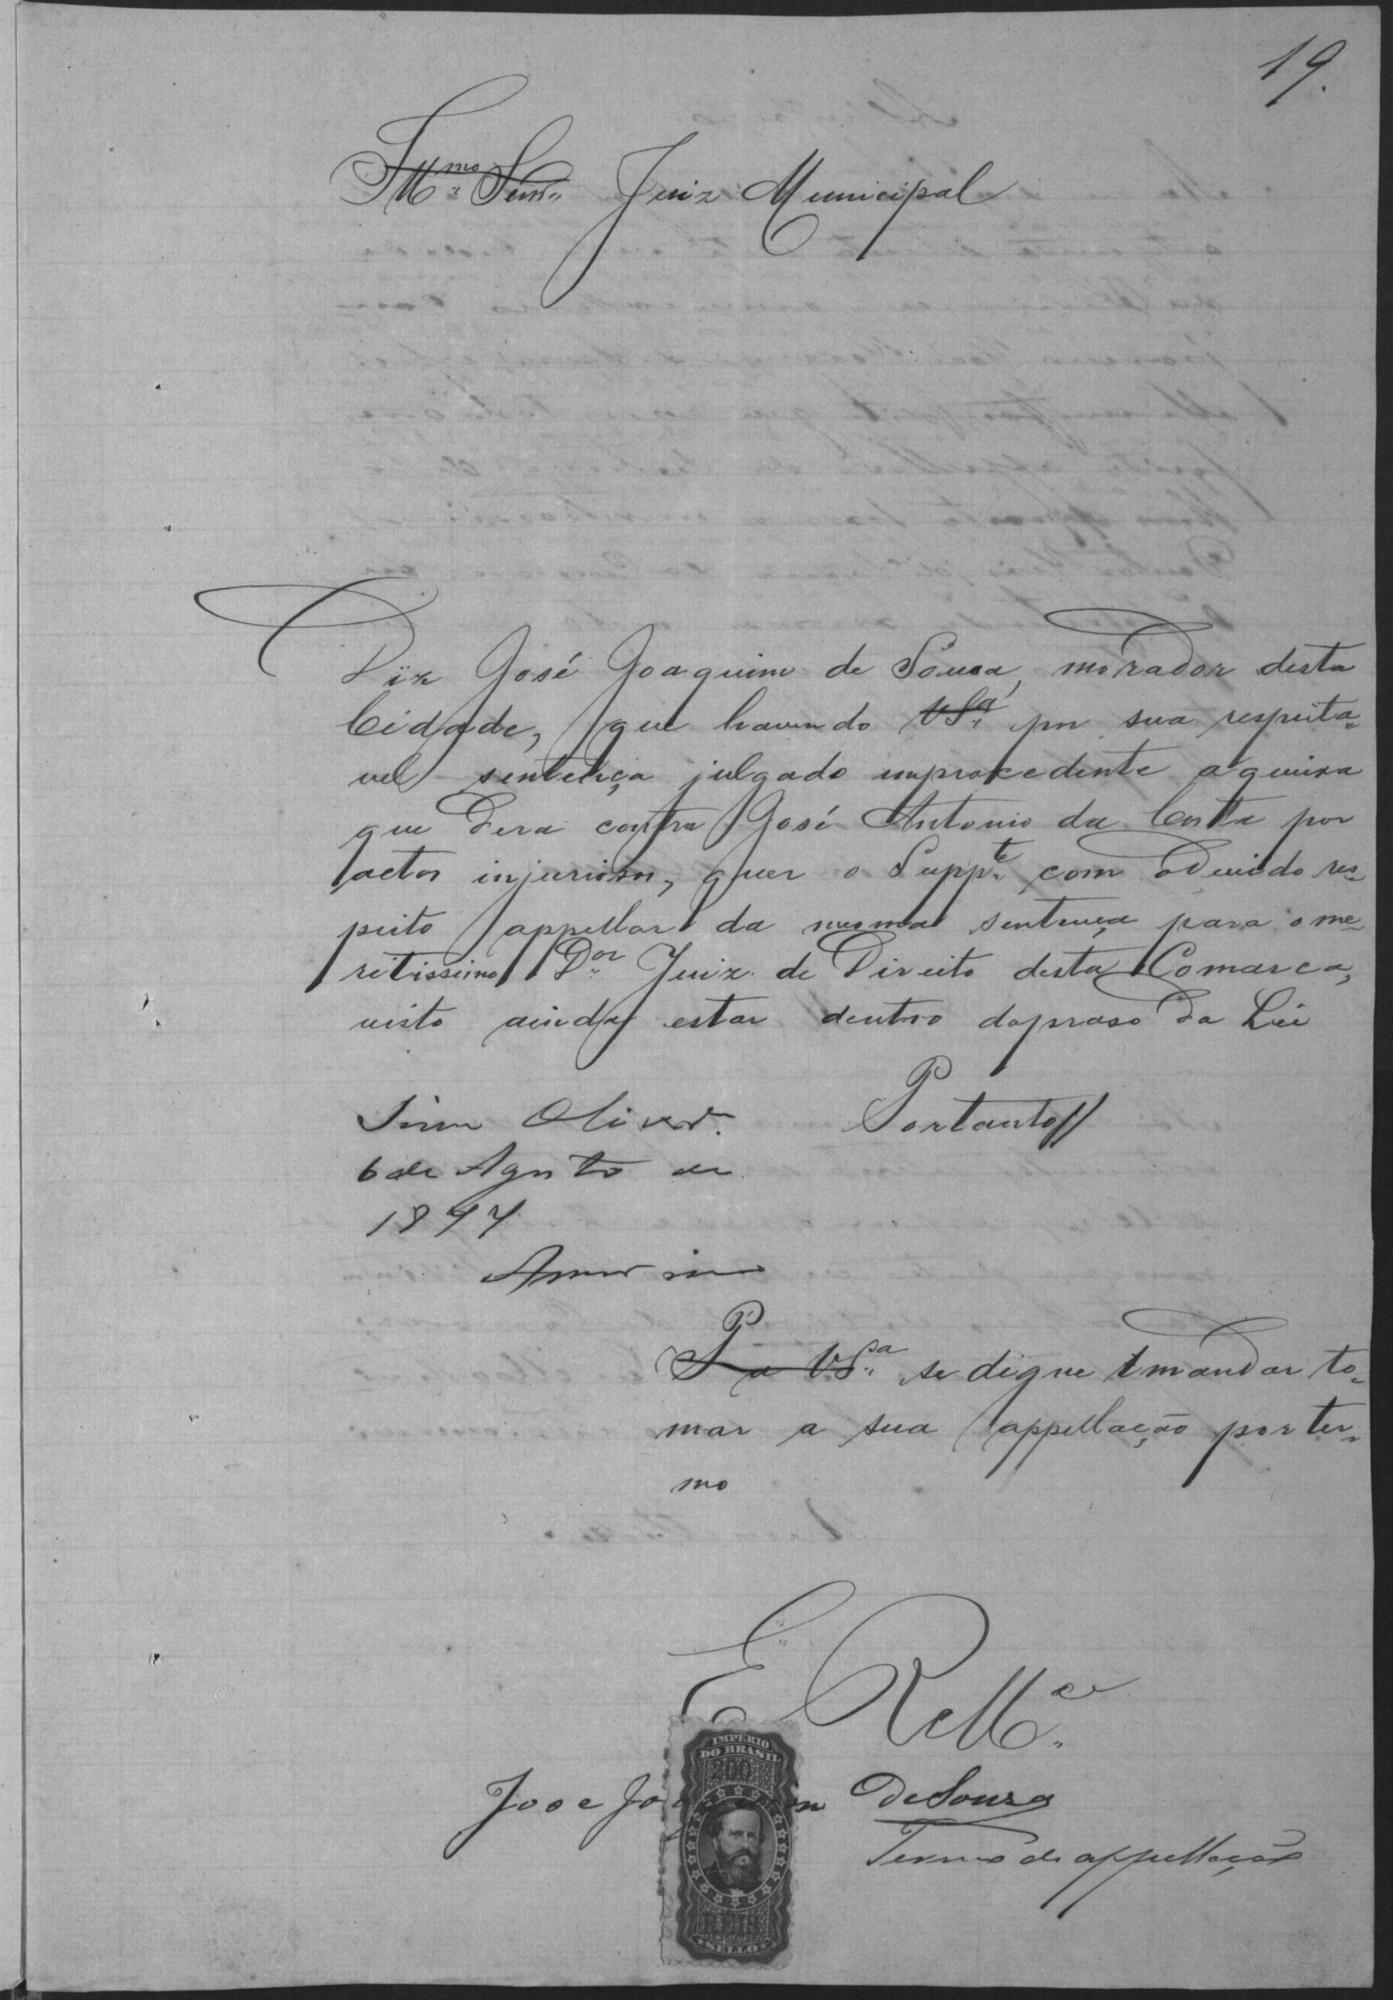 19.
Illmo Senr Juiz Municipal
Diz José Joaquim de Sousa, morador desta
Cidade, que havendo VSa por sua respeita-
vel sentença julgado improcedente a queixa
que dera contra José Antonio da Costa por
actos injuriosos, quer o Suppte com o devido res-
peito appellar da mesma sentença para o me-
ritissimo Dor Juiz de Direito desta Comarca,
visto ainda estar dentro do praso da Lei
Portanto//
Sim
6 de Agosto de
1877
Amorim
P a VSa se digne mandar to-
mar a sua appellação por ter-
mo
E R Mce
Jose Joaquim de Souza
Termo de appellação
IMPERIO
DO BRASIL
200
REIS
SELLO